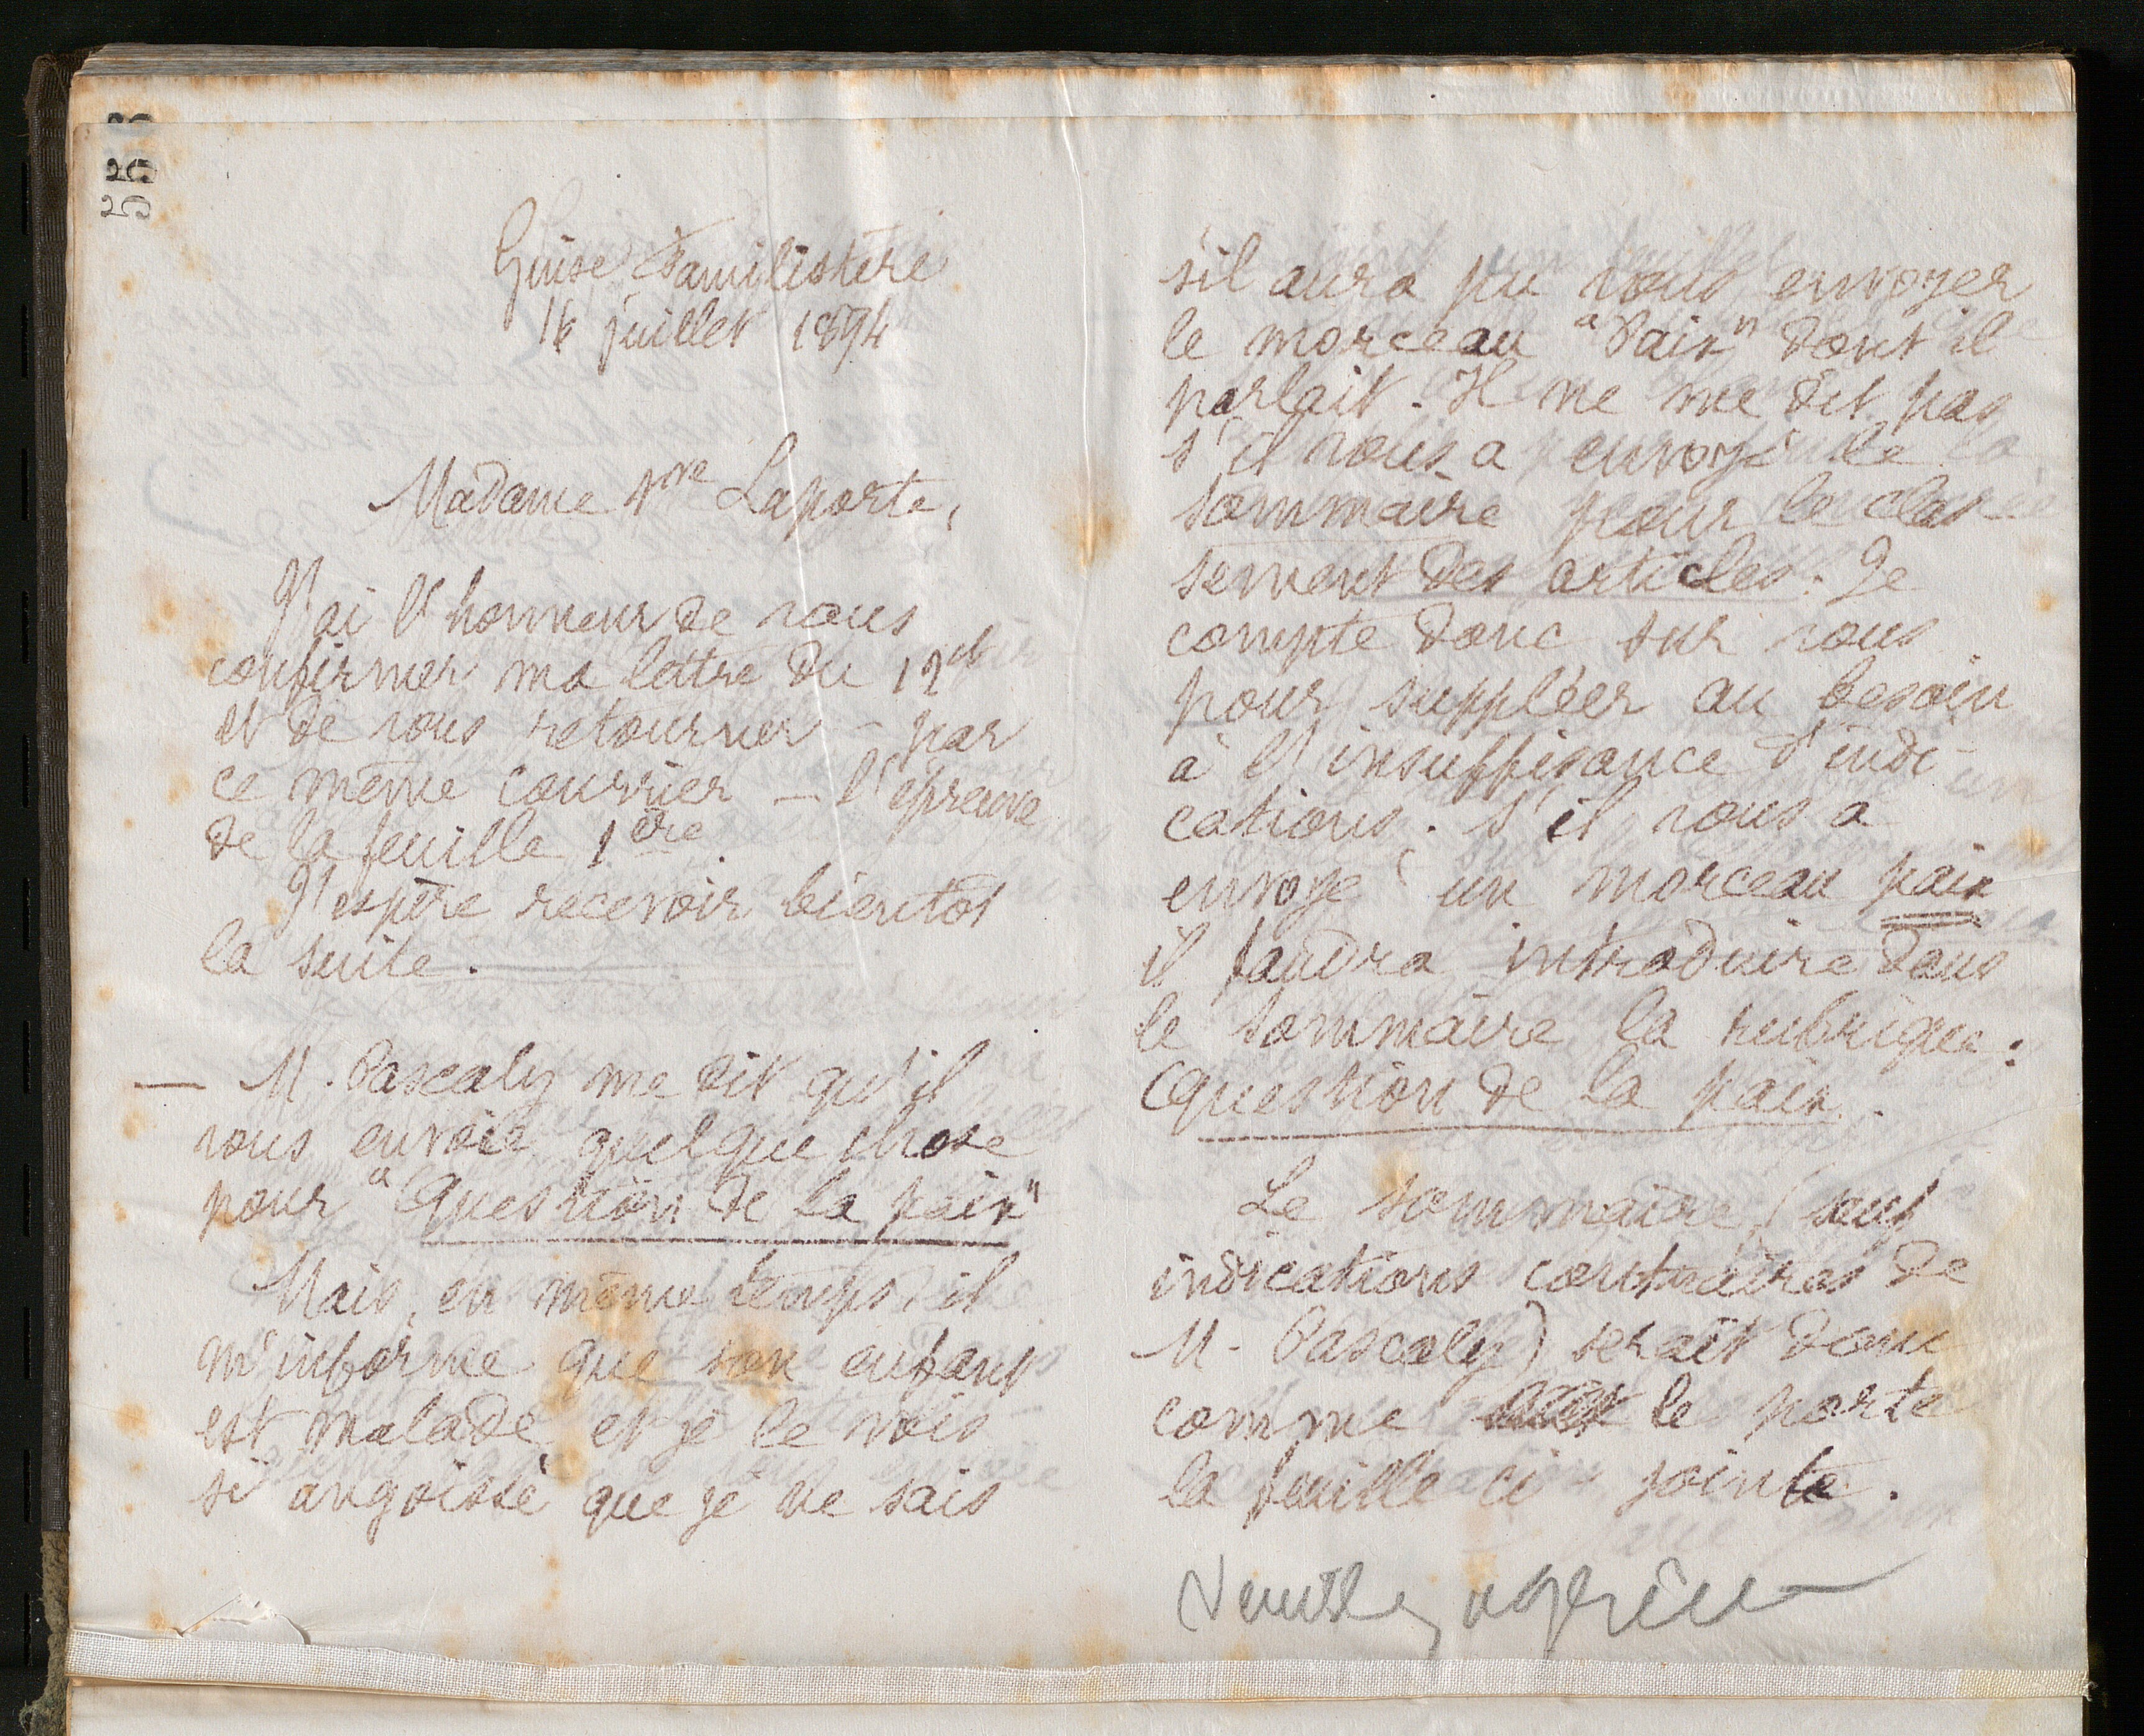 Guise Familistère
16 juillet 1894
Madame Vve Laporte,
J'ai l'honneur de vous
confirmer ma lettre du 12 ct
et de vous retourner - par
ce même courrier - l'épreuve
de la feuille 1ère.
J'espère recevoir bientôt
la suite.
— M. Pascaly me dit qu'il
vous envoie quelque chose
pour "Question de la paix"
Mais, en même temps, il
m'informe que son enfant
est malade et je le vois
si angoissé que je ne sais
s'il aura pu vous envoyer
le morceau "Paix" dont il
parlait. Il ne me dit pas
s'il vous a envoyé le
sommaire pour le clas
sement des articles. Je
compte donc sur vous
pour suppléer au besoin
à l'insuffisance d'indi-
cations. S'il vous a
envoyé un morceau paix
il faudra introduire dans
le sommaire la rubrique :
Question de la paix.
Le sommaire (sauf
indications contraires de
M. Pascaly) serait donc
comme le porte
la feuille ci-jointe.
Veuillez agréer